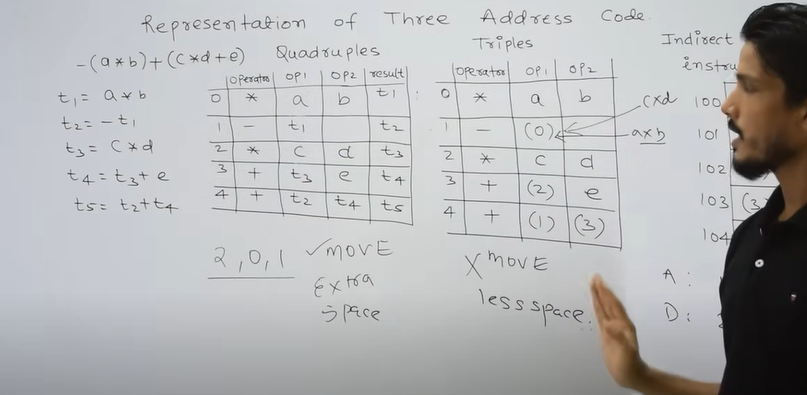 Representation of Three Address Code
-(a*b)+(c*d+e)
t1 = a*b
t2 = -t1
t3 = c*d
t4 = t3+e
t5 = t2+t4
Quadruples
operator op1 op2 result
0 * a b t1
1 - t1 t2
2 * c d t3
3 + t3 e t4
4 + t2 t4 t5
2,0,1 ✓MOVE
Extra
space
Triples
operator op1 op2
0 * a b
1 - (0)
2 * c d
3 + (2) e
4 + (1) (3)
c×d
a×b
X MOVE
less space.
Indirect
instru
100
101
102
103 (3
104
A:
D: